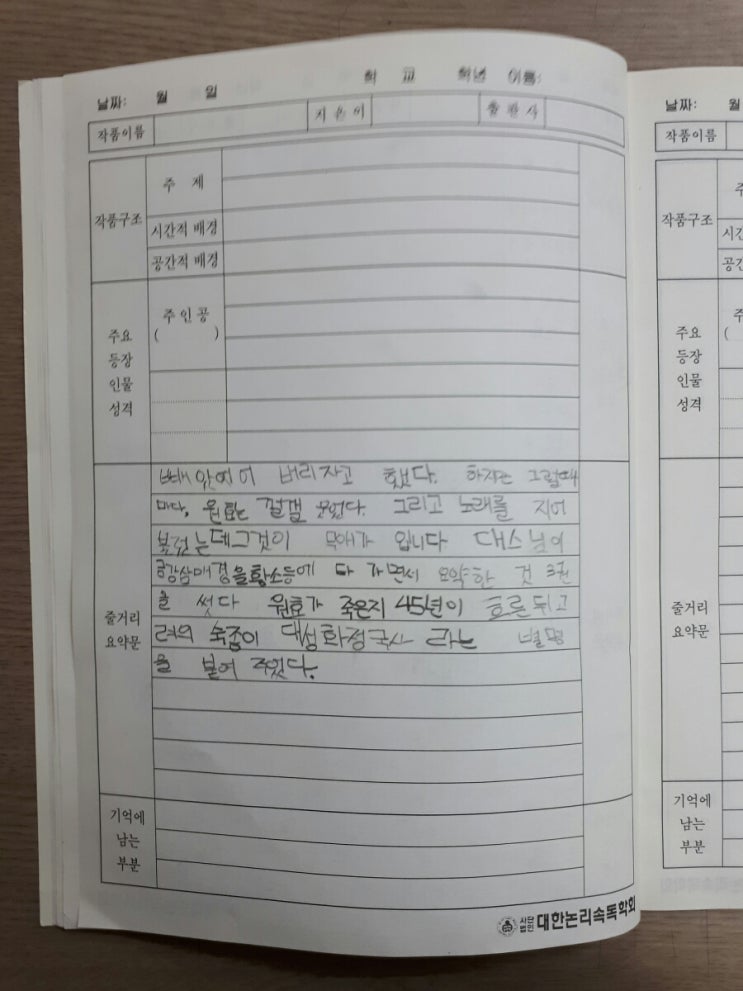 날짜: 월 일 학 교 학년 이름:
작품이름 지은이 출판사
작품구조
주 제
시간적 배경
공간적 배경
주요
등장
인물
성격
주인공
( )
줄거리
요약문
빼앗어 버리자고 했다. 하지만 그럴때
마다, 원효는 껄껄 웃었다. 그리고 노래를 지어
불렀는데그것이 무애가 입니다 대스님이
강삼매경을황소등에 다 가면서 요약한 것 3권
을 썻다 원효가 죽은지 45년이 흐른뒤고
려의 숙종이 대성화정국사 라는 별명
을 붙여 주었다.
기억에
남는
부분
사단
법인 대한논리속독학회
날짜: 월
작품이름
작품구조
주
시간
공간
주요
등장
인물
성격
주
(
줄거리
요약문
기억에
남는
부분